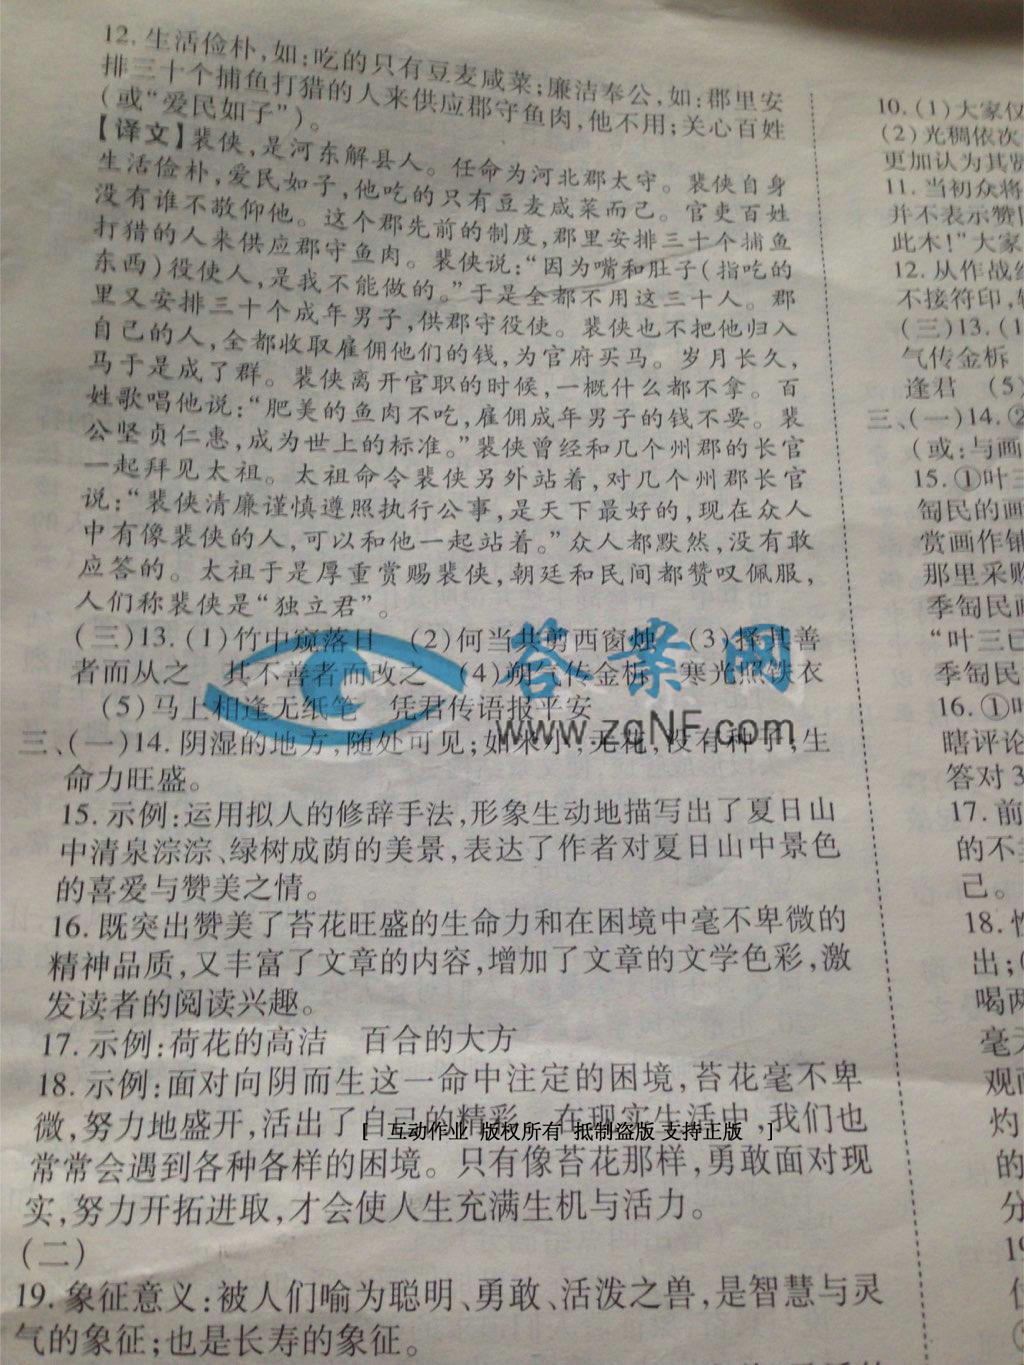 12. 生活俭朴,如:吃的只有豆麦咸菜;廉洁奉公,如:郡里安
排三十个捕鱼打猎的人来供应郡守鱼肉,他不用;关心百姓
(或“爱民如子”)。
【译文】裴侠,是河东解县人。任命为河北郡太守。裴侠自身
生活俭朴,爱民如子,他吃的只有豆麦咸菜而已。官吏百姓
没有谁不敬仰他。这个郡先前的制度,郡里安排三十个捕鱼
打猎的人来供应郡守鱼肉。裴侠说:“因为嘴和肚子(指吃的
东西)役使人,是我不能做的。”于是全都不用这三十人。郡
里又安排三十个成年男子,供郡守役使。裴侠也不把他归入
自己的人,全都收取雇佣他们的钱,为官府买马。岁月长久,
马于是成了群。裴侠离开官职的时候,一概什么都不拿。百
姓歌唱他说:“肥美的鱼肉不吃,雇佣成年男子的钱不要。裴
公坚贞仁惠,成为世上的标准。”裴侠曾经和几个州郡的长官
一起拜见太祖。太祖命令裴侠另外站着,对几个州郡长官
说:“裴侠清廉谨慎遵照执行公事,是天下最好的,现在众人
中有像裴侠的人,可以和他一起站着。”众人都默然,没有敢
应答的。太祖于是厚重赏赐裴侠,朝廷和民间都赞叹佩服,
人们称裴侠是“独立君”。
(三)13. (1)竹中窥落日 (2)何当共剪西窗烛 (3)择其善
者而从之 其不善者而改之 (4)朔气传金柝 寒光照铁衣
(5)马上相逢无纸笔 凭君传语报平安
答案网
www.zqNF.com
三、(一)14. 阴湿的地方,随处可见;如米小,无花,没有种子,生
命力旺盛。
15. 示例:运用拟人的修辞手法,形象生动地描写出了夏日山
中清泉淙淙、绿树成荫的美景,表达了作者对夏日山中景色
的喜爱与赞美之情。
16. 既突出赞美了苔花旺盛的生命力和在困境中毫不卑微的
精神品质,又丰富了文章的内容,增加了文章的文学色彩,激
发读者的阅读兴趣。
17. 示例:荷花的高洁 百合的大方
18. 示例:面对向阴而生这一命中注定的困境,苔花毫不卑
微,努力地盛开,活出了自己的精彩。在现实生活中,我们也
[ 互动作业 版权所有 抵制盗版 支持正版 ]
常常会遇到各种各样的困境。只有像苔花那样,勇敢面对现
实,努力开拓进取,才会使人生充满生机与活力。
(二)
19. 象征意义:被人们喻为聪明、勇敢、活泼之兽,是智慧与灵
气的象征;也是长寿的象征。
10. (1)大家仅
(2)光稠依次
更加认为其贤
11. 当初众将
并不表示赞同
此木!”大家
12. 从作战
不接符印,
(三)13. (1
气传金柝
逢君 (5)
三、(一)14. 
(或:与画
15. ①叶三
匋民的画
赏画作铺
那里采购
季匋民画
“叶三已
季匋民
16. ①
瞎评论
答对3
17. 前
的不
己。
18. 
出;
喝两
毫无
观画
灼
的
分
19